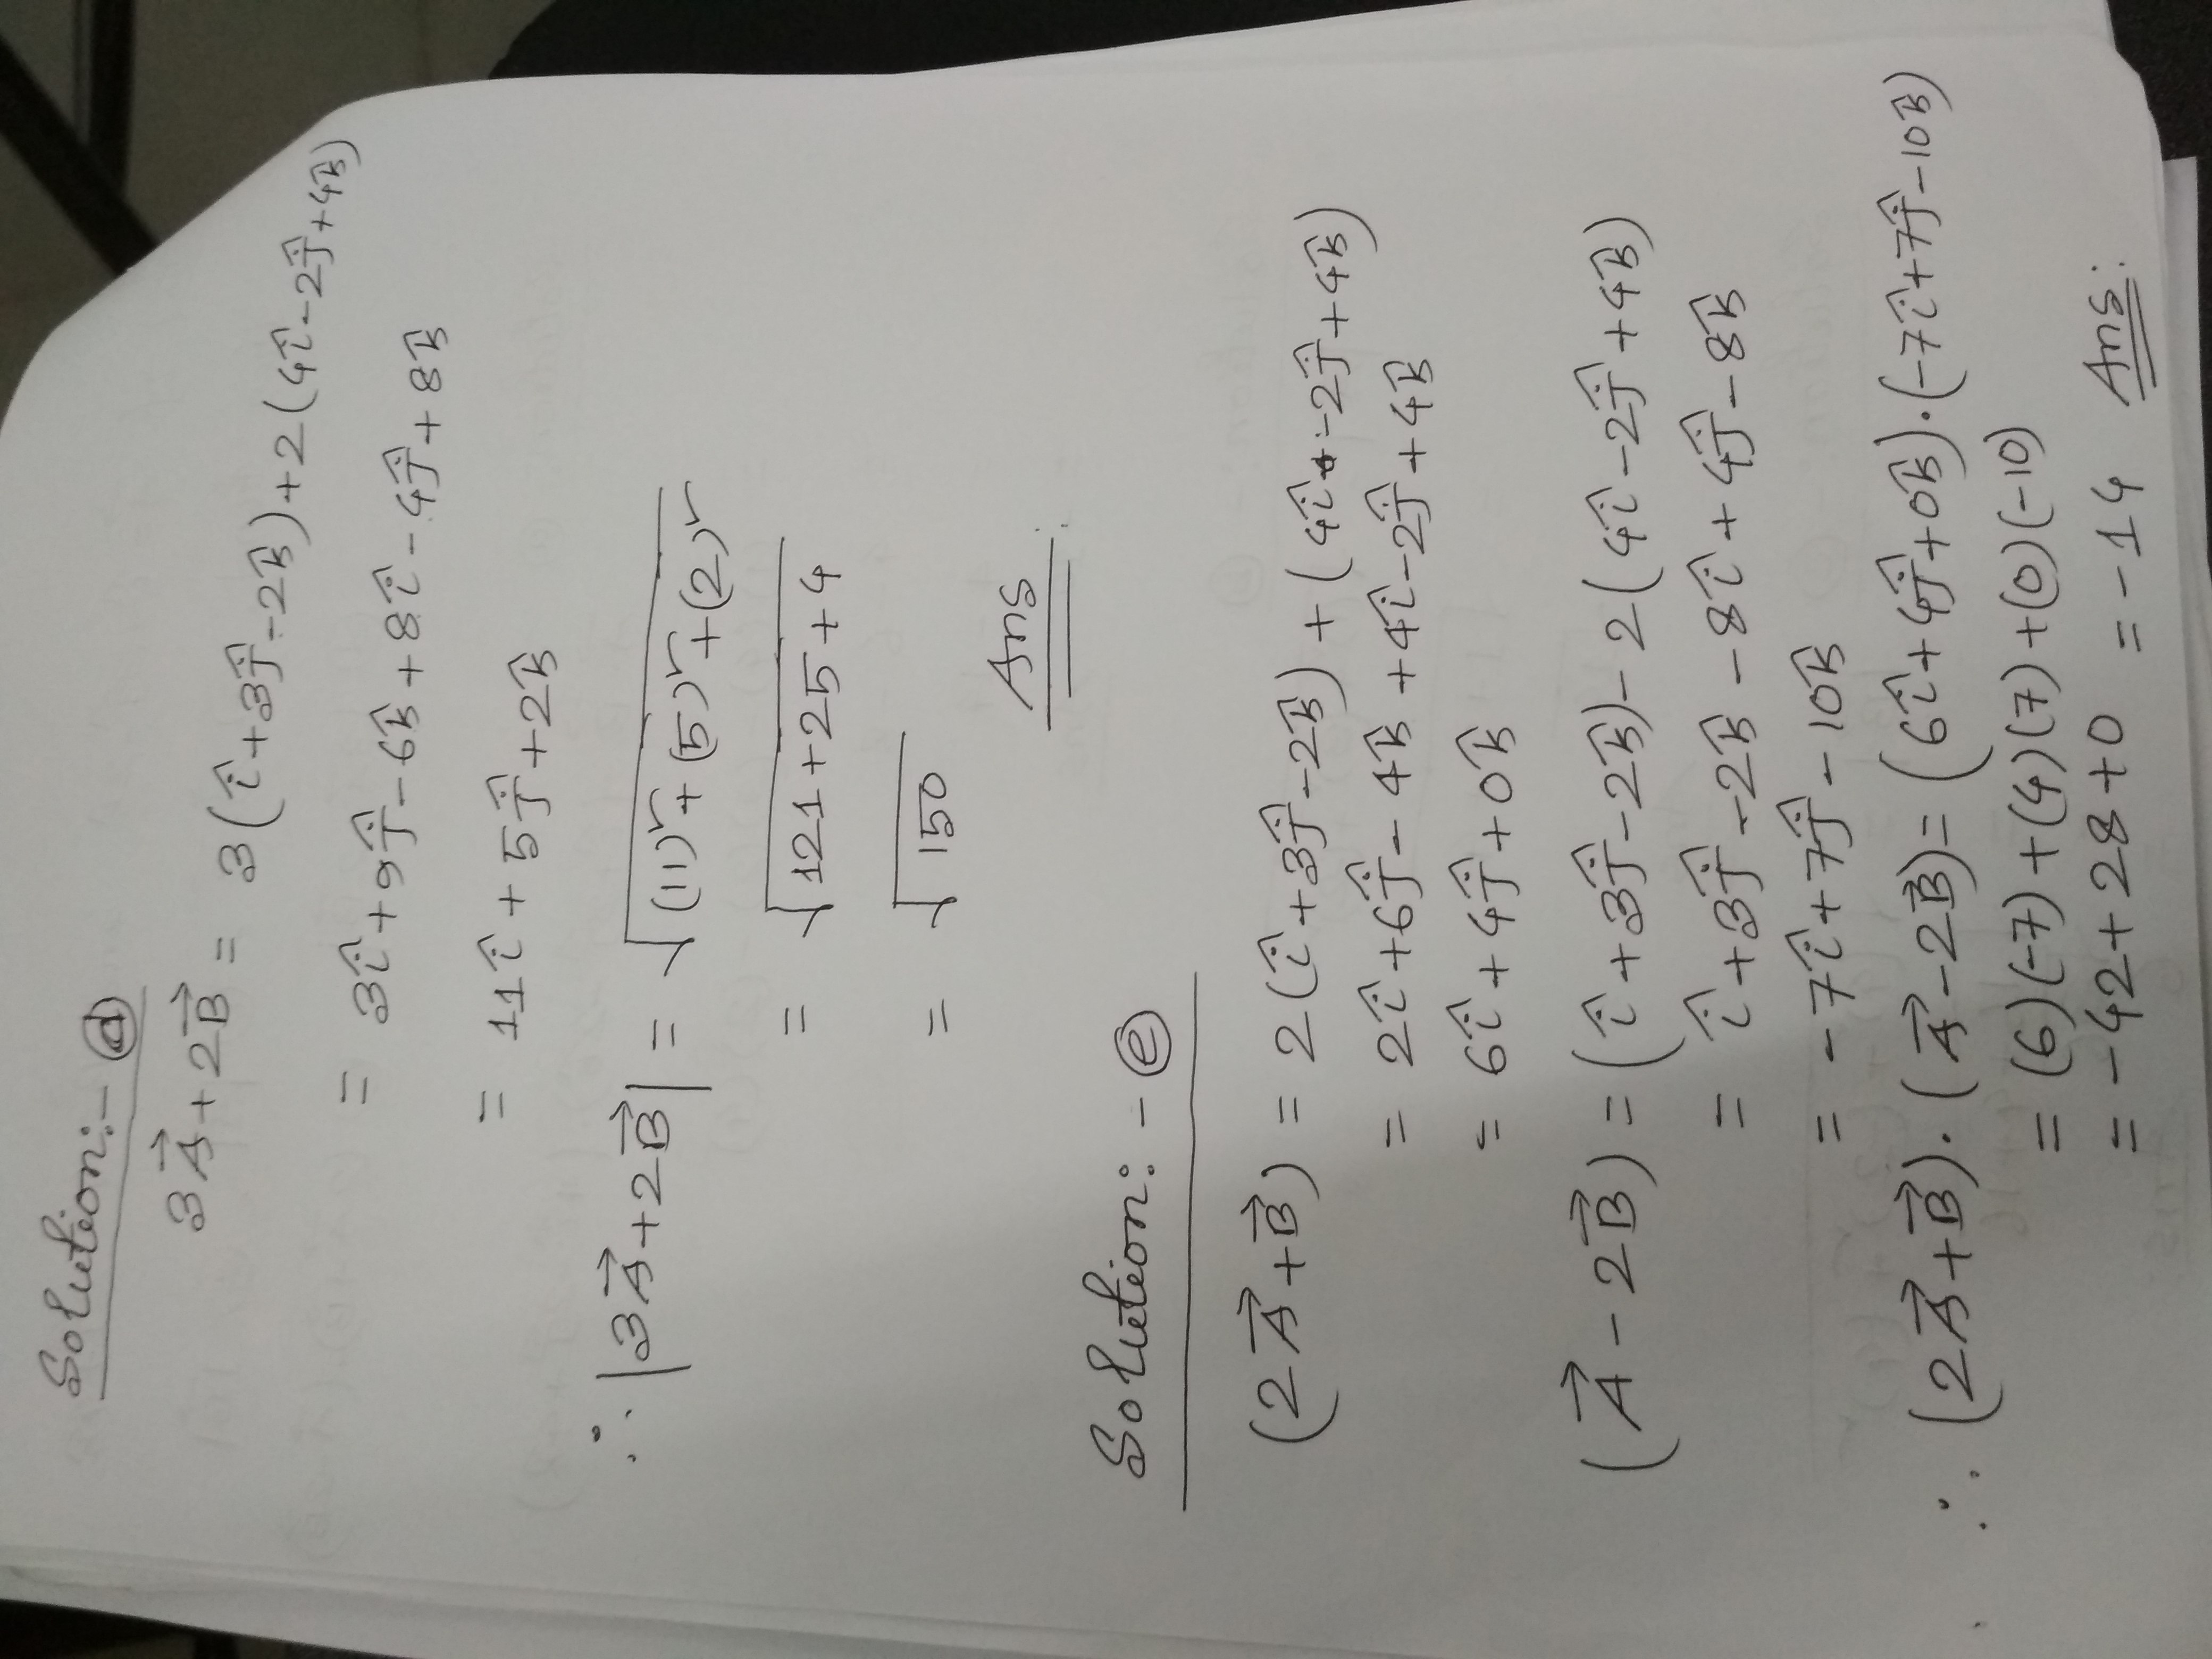 Solution:- ⓓ
3A⃗+2B⃗ = 3(î+3ĵ-2k̂)+2(4î-2ĵ+4k̂)
= 3î+9ĵ-6k̂+8î-4ĵ+8k̂
= 11î+5ĵ+2k̂
∴ |3A⃗+2B⃗| = √(11)²+(5)²+(2)²
= √121+25+4
= √150
Ans:
Solution:- ⓔ
(2A⃗+B⃗) = 2(î+3ĵ-2k̂)+(4î-2ĵ+4k̂)
= 2î+6ĵ-4k̂+4î-2ĵ+4k̂
= 6î+4ĵ+0k̂
(A⃗-2B⃗) = (î+3ĵ-2k̂)-2(4î-2ĵ+4k̂)
= î+3ĵ-2k̂-8î+4ĵ-8k̂
= -7î+7ĵ-10k̂
∴ (2A⃗+B⃗).(A⃗-2B⃗)=(6î+4ĵ+0k̂).(-7î+7ĵ-10k̂)
= (6)(-7)+(4)(7)+(0)(-10)
= -42+28+0 = -14 Ans: